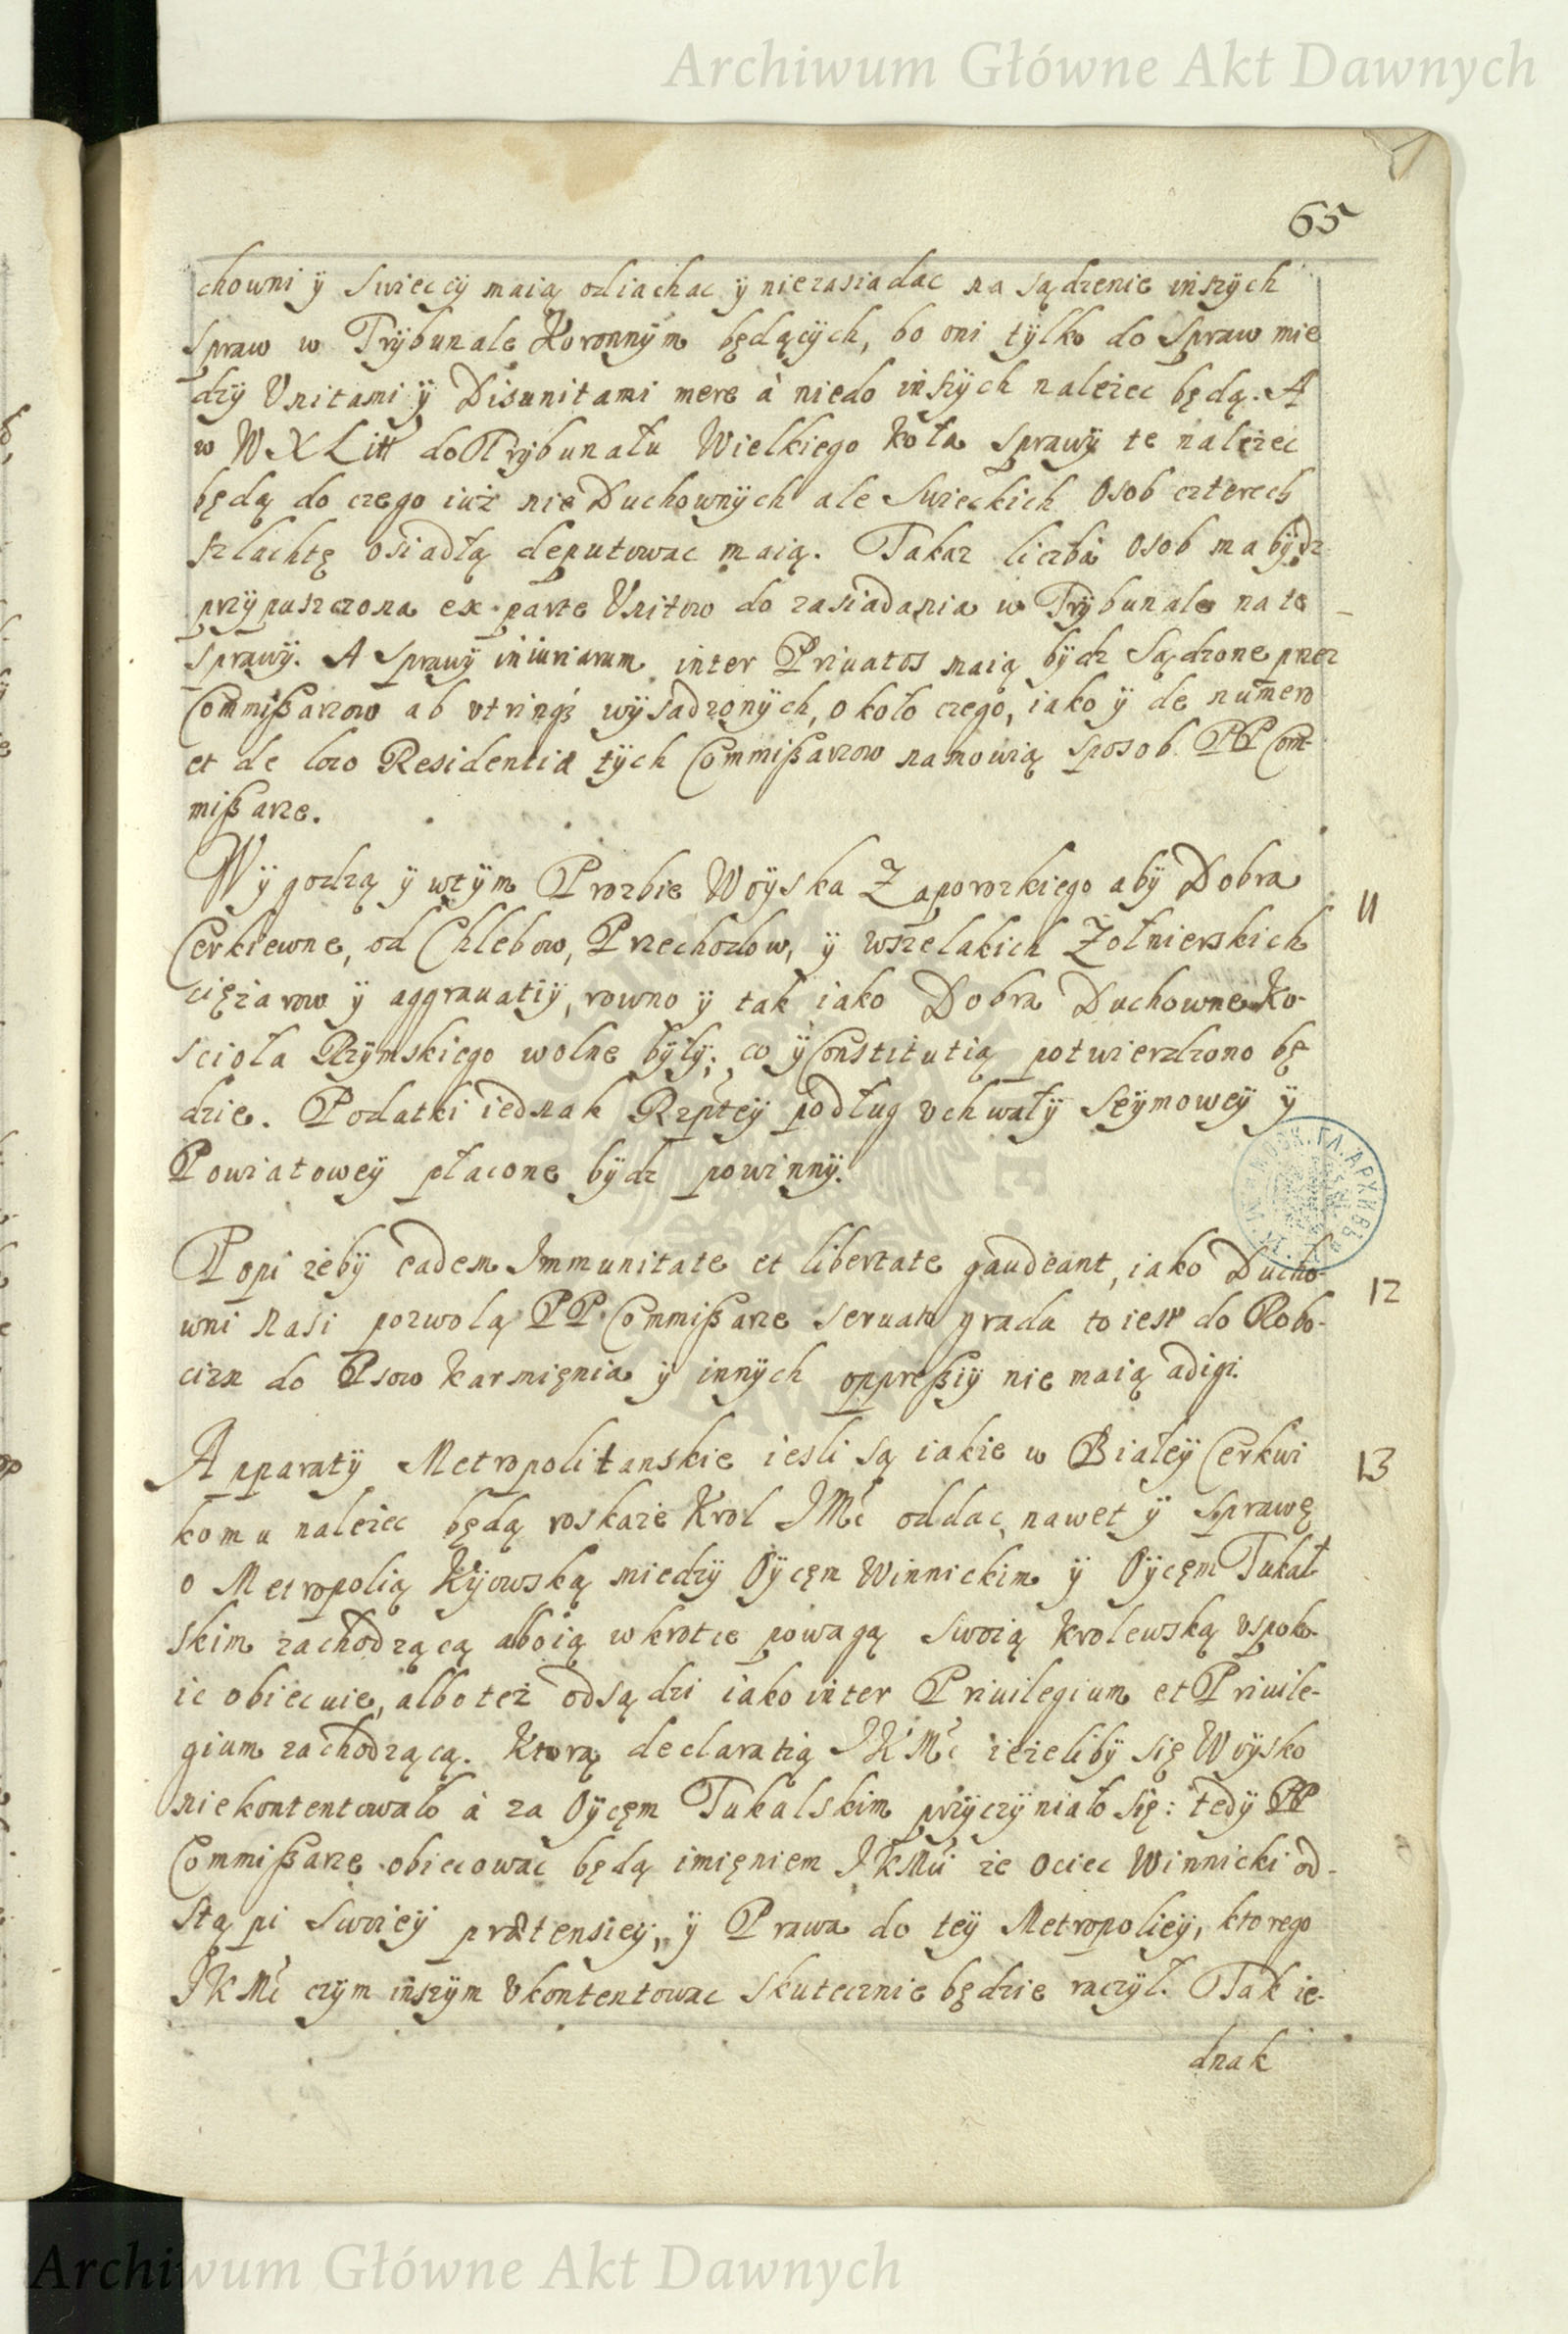 Archiwum Główne Akt Dawnych
65
chowni ÿ Swieccÿ maią odiachac ÿ niezasiadac na sądzenie inszÿch
spraw w Trÿbunale Koronnÿm będącÿch, bo oni tÿlko do Spraw mie
dzÿ Vnitami ÿ Disunitami mere à niedo inszÿch nalezec będą. A
w W X Litt do Trÿbunału Wielkiego Koła Sprawÿ te nalezec
będą do czego iuż nie Duchownÿch ale Swieckich Osob czterech
szlachtę osiadłą deputowac maią. Takaz liczba Osob ma bÿdz
przÿpuszczona ex parte Vnitow do zasiadania w Trÿbunale na te
sprawÿ. A Sprawÿ iniuriarum inter Priuatos maią bÿdz Sądzone przez
Commißarzow ab vtrinqȝ wÿsadzonÿch, około czego, iako ÿ de numero
et de loco Residentia tÿch Commißarzow namowią sposob PP Com-
mißarze.
Wÿgodzą ÿ wtÿm Prozbie Woÿska Zaporozkiego abÿ Dobra
Cerkiewne, od Chlebow, Przechodow, ÿ wszelakich Zołnierskich
cięzarow ÿ aggrauatiÿ, rowno ÿ tak iako Dobra Duchowne Ko-
scioła Rzÿmskiego wolne bÿłÿ; co ÿ Constitutią potwierdzono bę
dzie. Podatki iednak Rzpteÿ podług vchwałÿ Seÿmoweÿ ÿ
Powiatoweÿ płacone bÿdz powinnÿ.
11
Popi zebÿ eadem Immunitate et libertate gaudeant, iako Ducho-
wni nasi pozwolą PP Commißarze seruato gradu to iest do Robo-
cizn do Psow karmięnia ÿ innÿch oppreßiÿ nie maią adigi.
12
Apparatÿ Metropolitanskie iesli są iakie w Białeÿ Cerkwi
komu nalezec będą roskaże Krol JMć oddac, nawet ÿ Sprawę
o Metropolią Kÿowską miedzÿ Oÿcęm Winnickim ÿ Oÿcęm Tukal
skim zachodzącą abo ią wkrotce powagą swoią krolewską vspoko-
ic obiecuie, albo też odsądzi iako inter Priuilegium et Priuile-
gium zachodzącą. Ktorą declaratią JKMć ieżelibÿ się Woÿsko
niekontentowało à za Oÿcęm Tukalskim przÿczÿniało się: tedÿ PP
Commißarze obiecowac będą imięniem JKMći że Ociec Winnicki od-
stąpi swoieÿ prætensieÿ, ÿ Prawa do teÿ Metropolieÿ, ktorego
JKMć czÿm inszÿm vkontentowac skutecznie będzie raczÿł. Tak ie-
dnak
13
Archiwum Główne Akt Dawnych